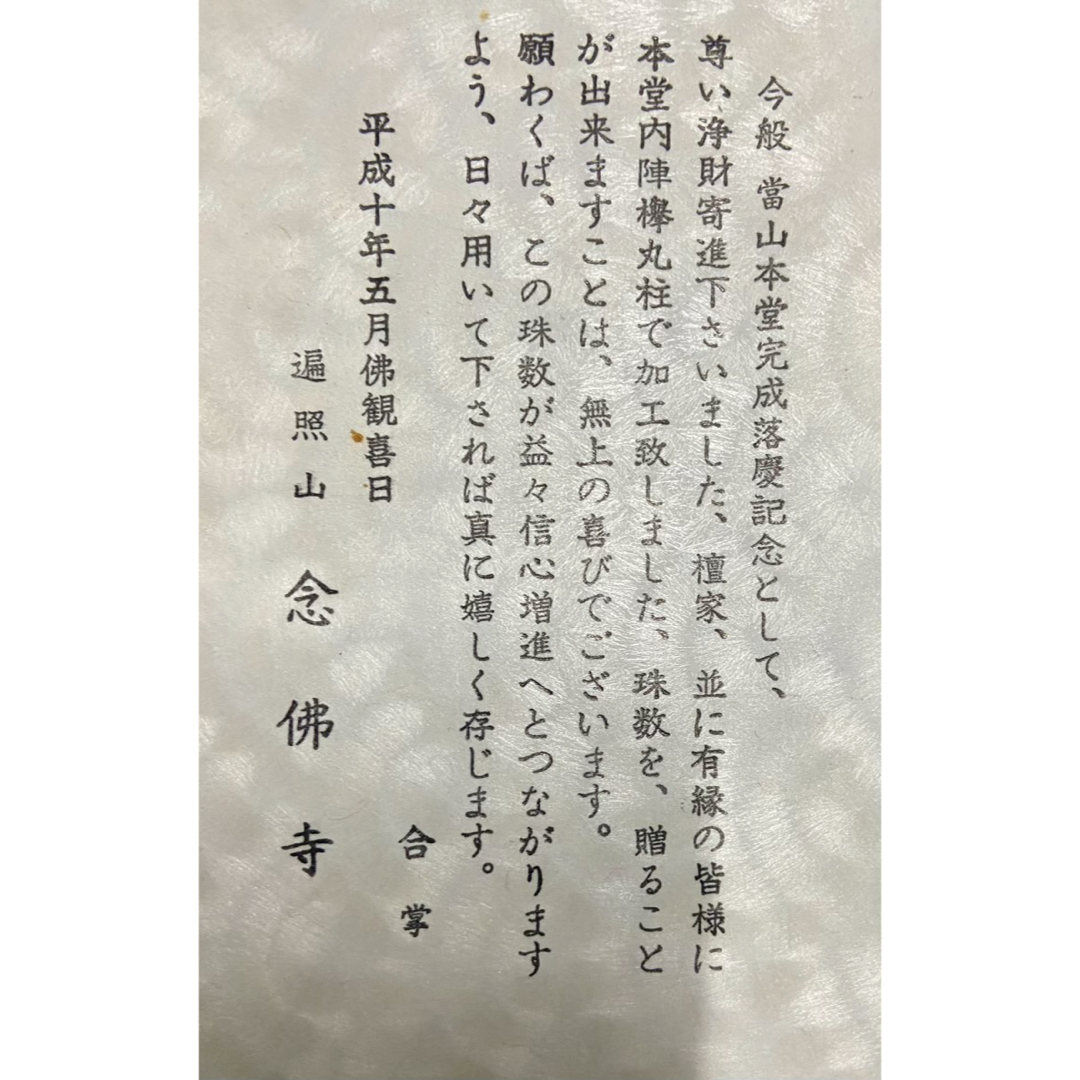 今般 當山本堂完成落慶記念として、
尊い浄財寄進下さいました、檀家、並に有縁の皆様に
本堂内陣欅丸柱で加工致しました、珠数を、贈ること
が出来ますことは、無上の喜びでございます。
願わくば、この珠数が益々信心増進へとつながります
よう、日々用いて下されば真に嬉しく存じます。
合掌
平成十年五月佛観喜日
遍照山 念佛寺